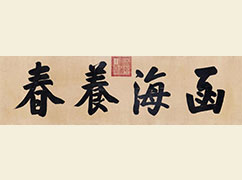 函海養春